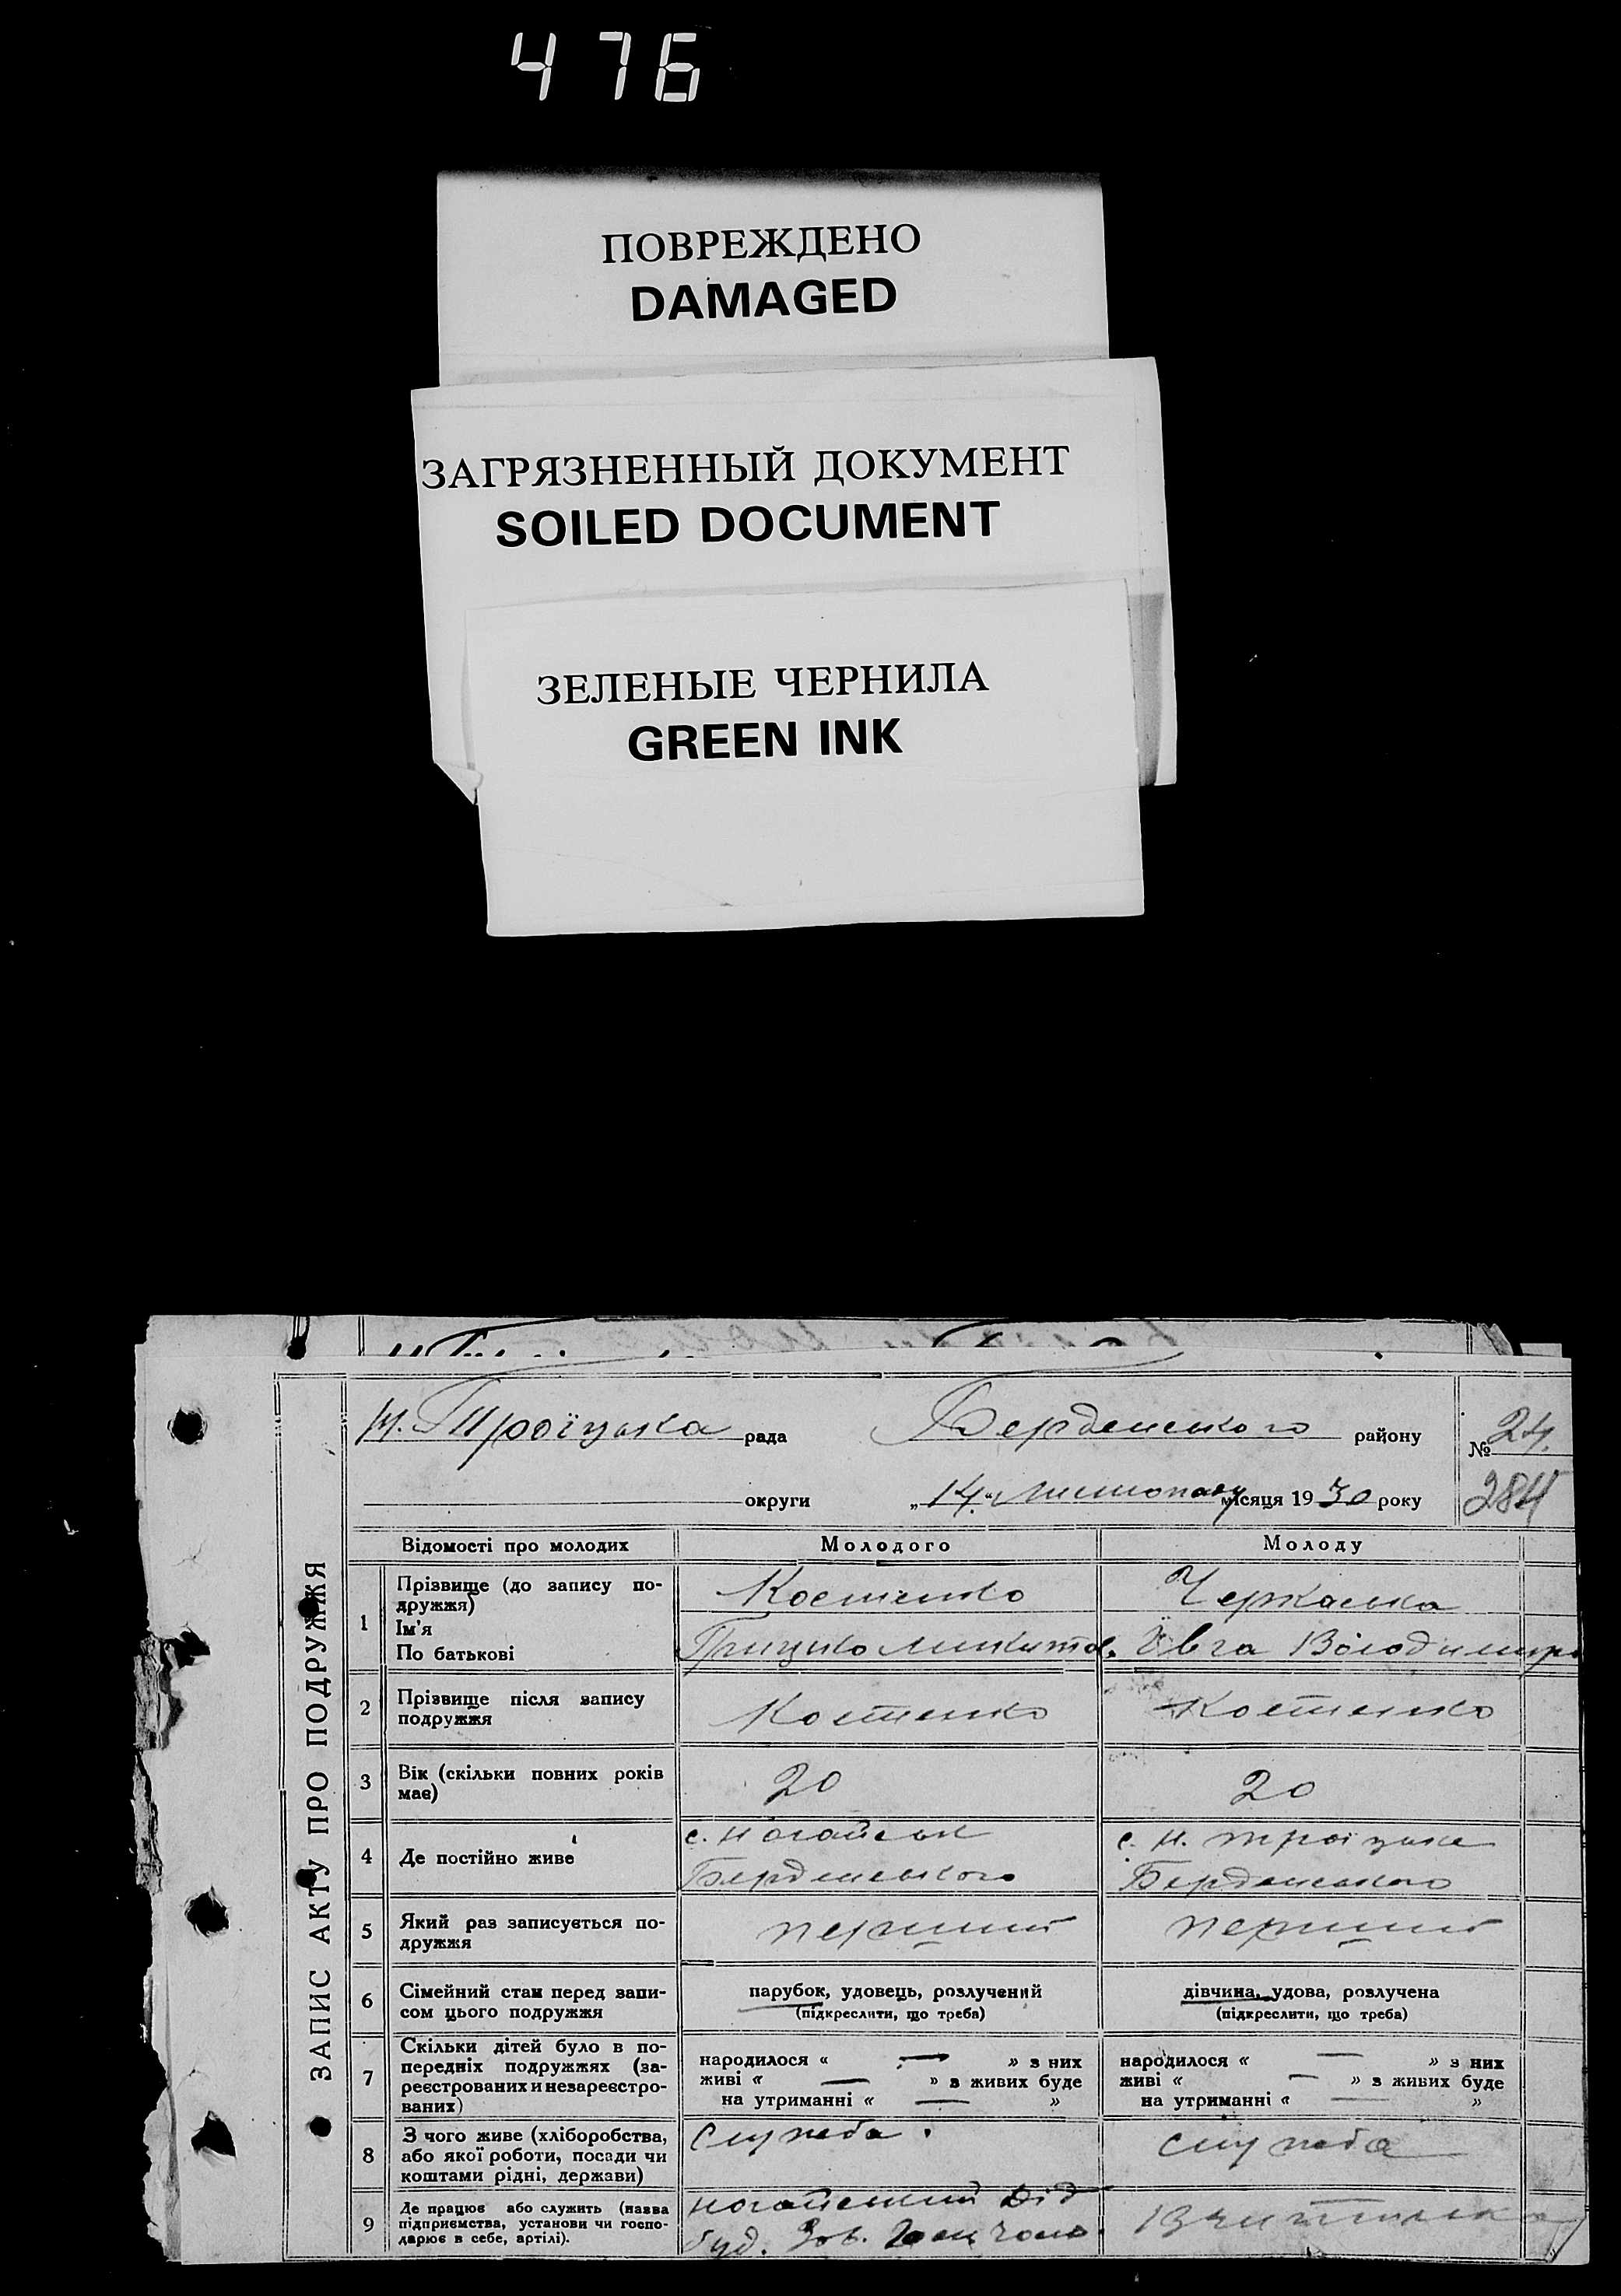 476
ПОВРЕЖДЕНО
DAMAGED
ЗАГРЯЗНЕННЫЙ ДОКУМЕНТ
SOILED DOCUMENT
ЗЕЛЕНЫЕ ЧЕРНИЛА
GREEN INK
ЗАПИС АКТУ ПРО ПОДРУЖЖЯ
Н. Троїцька рада Бердянського району № 24.
округи „14“ листопаду місяця 1930 року 284
Відомості про молодих Молодого Молоду
1 Прізвище (до запису по-
дружжя) Костенко Черкаська
Ім'я
По батькові Грицько Микитов. Ївга Володимир
2 Прізвище після запису
подружжя Костенко Костенко
3 Вік (скільки повних років
має) 20 20
4 Де постійно живе с. Ногайськ с. Н. Троїцьке
Бердянського Бердянського
5 Який раз записується по-
дружжя перший перший
6 Сімейний стан перед запи- парубок, удовець, розлучений дівчина, удова, розлучена
сом цього подружжя (підкреслити, що треба) (підкреслити, що треба)
7 Скільки дітей було в по-
передніх подружжях (за-
реєстрованих и незареєстро-
ваних)
народилося « — » з них народилося « — » з них
живі « — » з живих буде живі « — » з живих буде
на утриманні « — » на утриманні « — »
8 З чого живе (хліборобства,
або якої роботи, посади чи
коштами рідні, держави) служба. служба
9 Де працює або служить (назва
підприємства, установи чи госпо-
дарює в себе, артілі).
Ногайський дід
буд. Зав. Вчителька